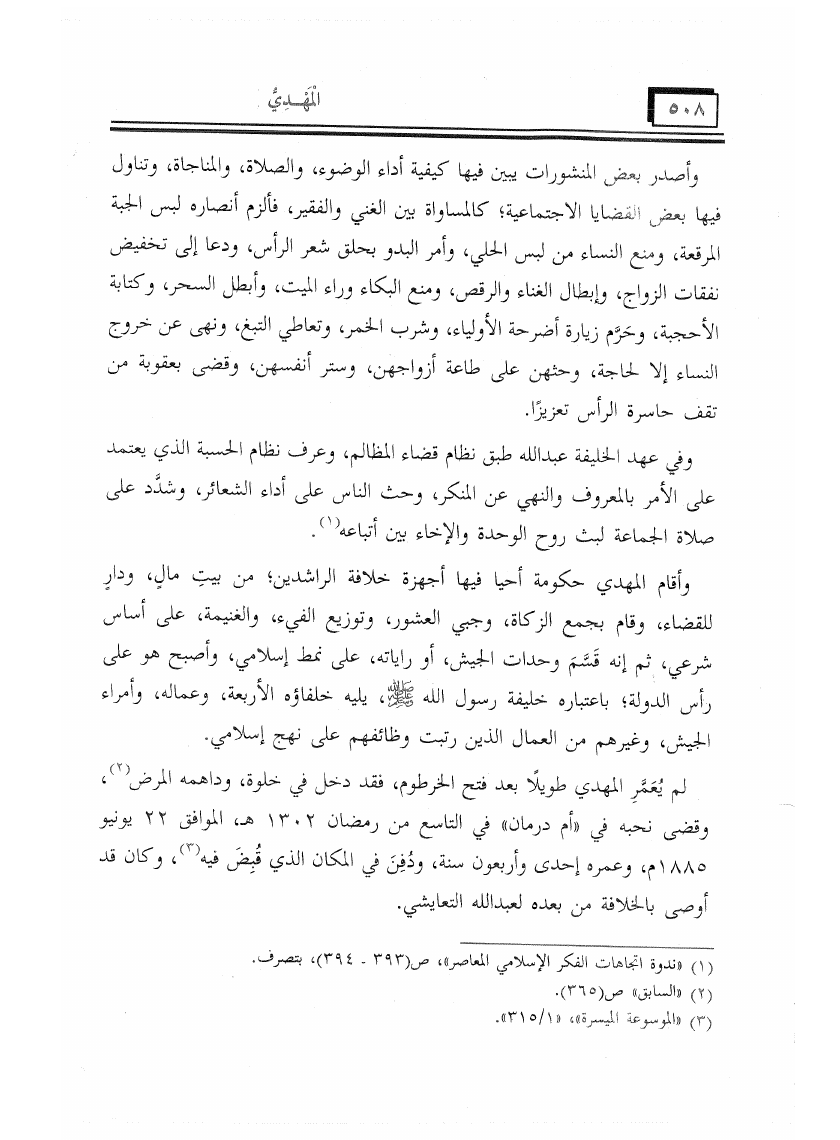 ٥٠٨ الْمَهْـدِيُّ
وأصدر بعض المنشورات يبين فيها كيفية أداء الوضوء، والصلاة، والمناجاة، وتناول
فيها بعض القضايا الاجتماعية؛ كالمساواة بين الغني والفقير، فألزم أنصاره لبس الجبة
المرقعة، ومنع النساء من لبس الحلي، وأمر البدو بحلق شعر الرأس، ودعا إلى تخفيض
نفقات الزواج، وإبطال الغناء والرقص، ومنع البكاء وراء الميت، وأبطل السحر، وكتابة
الأحجبة، وحَرَّم زيارة أضرحة الأولياء، وشرب الخمر، وتعاطي التبغ، ونهى عن خروج
النساء إلا لحاجة، وحثهن على طاعة أزواجهن، وستر أنفسهن، وقضى بعقوبة من
تقف حاسرة الرأس تعزيزًا.
وفي عهد الخليفة عبدالله طبق نظام قضاء المظالم، وعرف نظام الحسبة الذي يعتمد
على الأمر بالمعروف والنهي عن المنكر، وحث الناس على أداء الشعائر، وشدَّد على
صلاة الجماعة لبث روح الوحدة والإخاء بين أتباعه(١).
وأقام المهدي حكومة أحيا فيها أجهزة خلافة الراشدين؛ من بيتِ مالٍ، ودارٍ
للقضاء، وقام بجمع الزكاة، وجبي العشور، وتوزيع الفيء، والغنيمة، على أساس
شرعي، ثم إنه قَسَّمَ وحدات الجيش، أو راياته، على نمط إسلامي، وأصبح هو على
رأس الدولة؛ باعتباره خليفة رسول الله ﷺ، يليه خلفاؤه الأربعة، وعماله، وأمراء
الجيش، وغيرهم من العمال الذين رتبت وظائفهم على نهج إسلامي.
لم يُعَمَّرِ المهدي طويلًا بعد فتح الخرطوم، فقد دخل في خلوة، وداهمه المرض(٢)،
وقضى نحبه في «أم درمان» في التاسع من رمضان ١٣٠٢ هـ، الموافق ٢٢ يونيو
١٨٨٥م، وعمره إحدى وأربعون سنة، ودُفِنَ في المكان الذي قُبِضَ فيه(٣)، وكان قد
أوصى بالخلافة من بعده لعبدالله التعايشي.
(١) «ندوة اتجاهات الفكر الإسلامي المعاصر»، ص(٣٩٣ ـ ٣٩٤)، بتصرف.
(٢) «السابق» ص(٣٦٥).
(٣) «الموسوعة الميسرة»، «٣١٥/١».